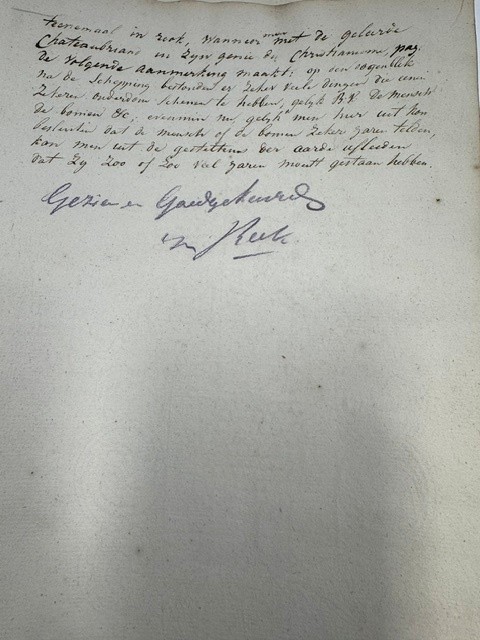 teenemaal in rook, wanneer men met de geleerde
Chateaubriand in zyn genie du Christianisme, pag:
de volgende aanmerking maakt: op een oogenblik
na de Schepping bestonden er zeker vele dingen die eenen
zekeren ouderdom schenen te hebben, gelyk B.V. de mensch
de bomen &c; evenmin nu, gelyk men hier uit kon
besluiten dat de mensch of de bomen zeker jaren telden,
kan men uit de gesteltenis der aarde afleiden
dat zy zoo of zoo veel jaren moest gestaan hebben.
Gezien en Goedgekeurd